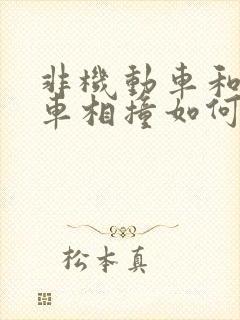 非機動車和
車相撞如何
松本真